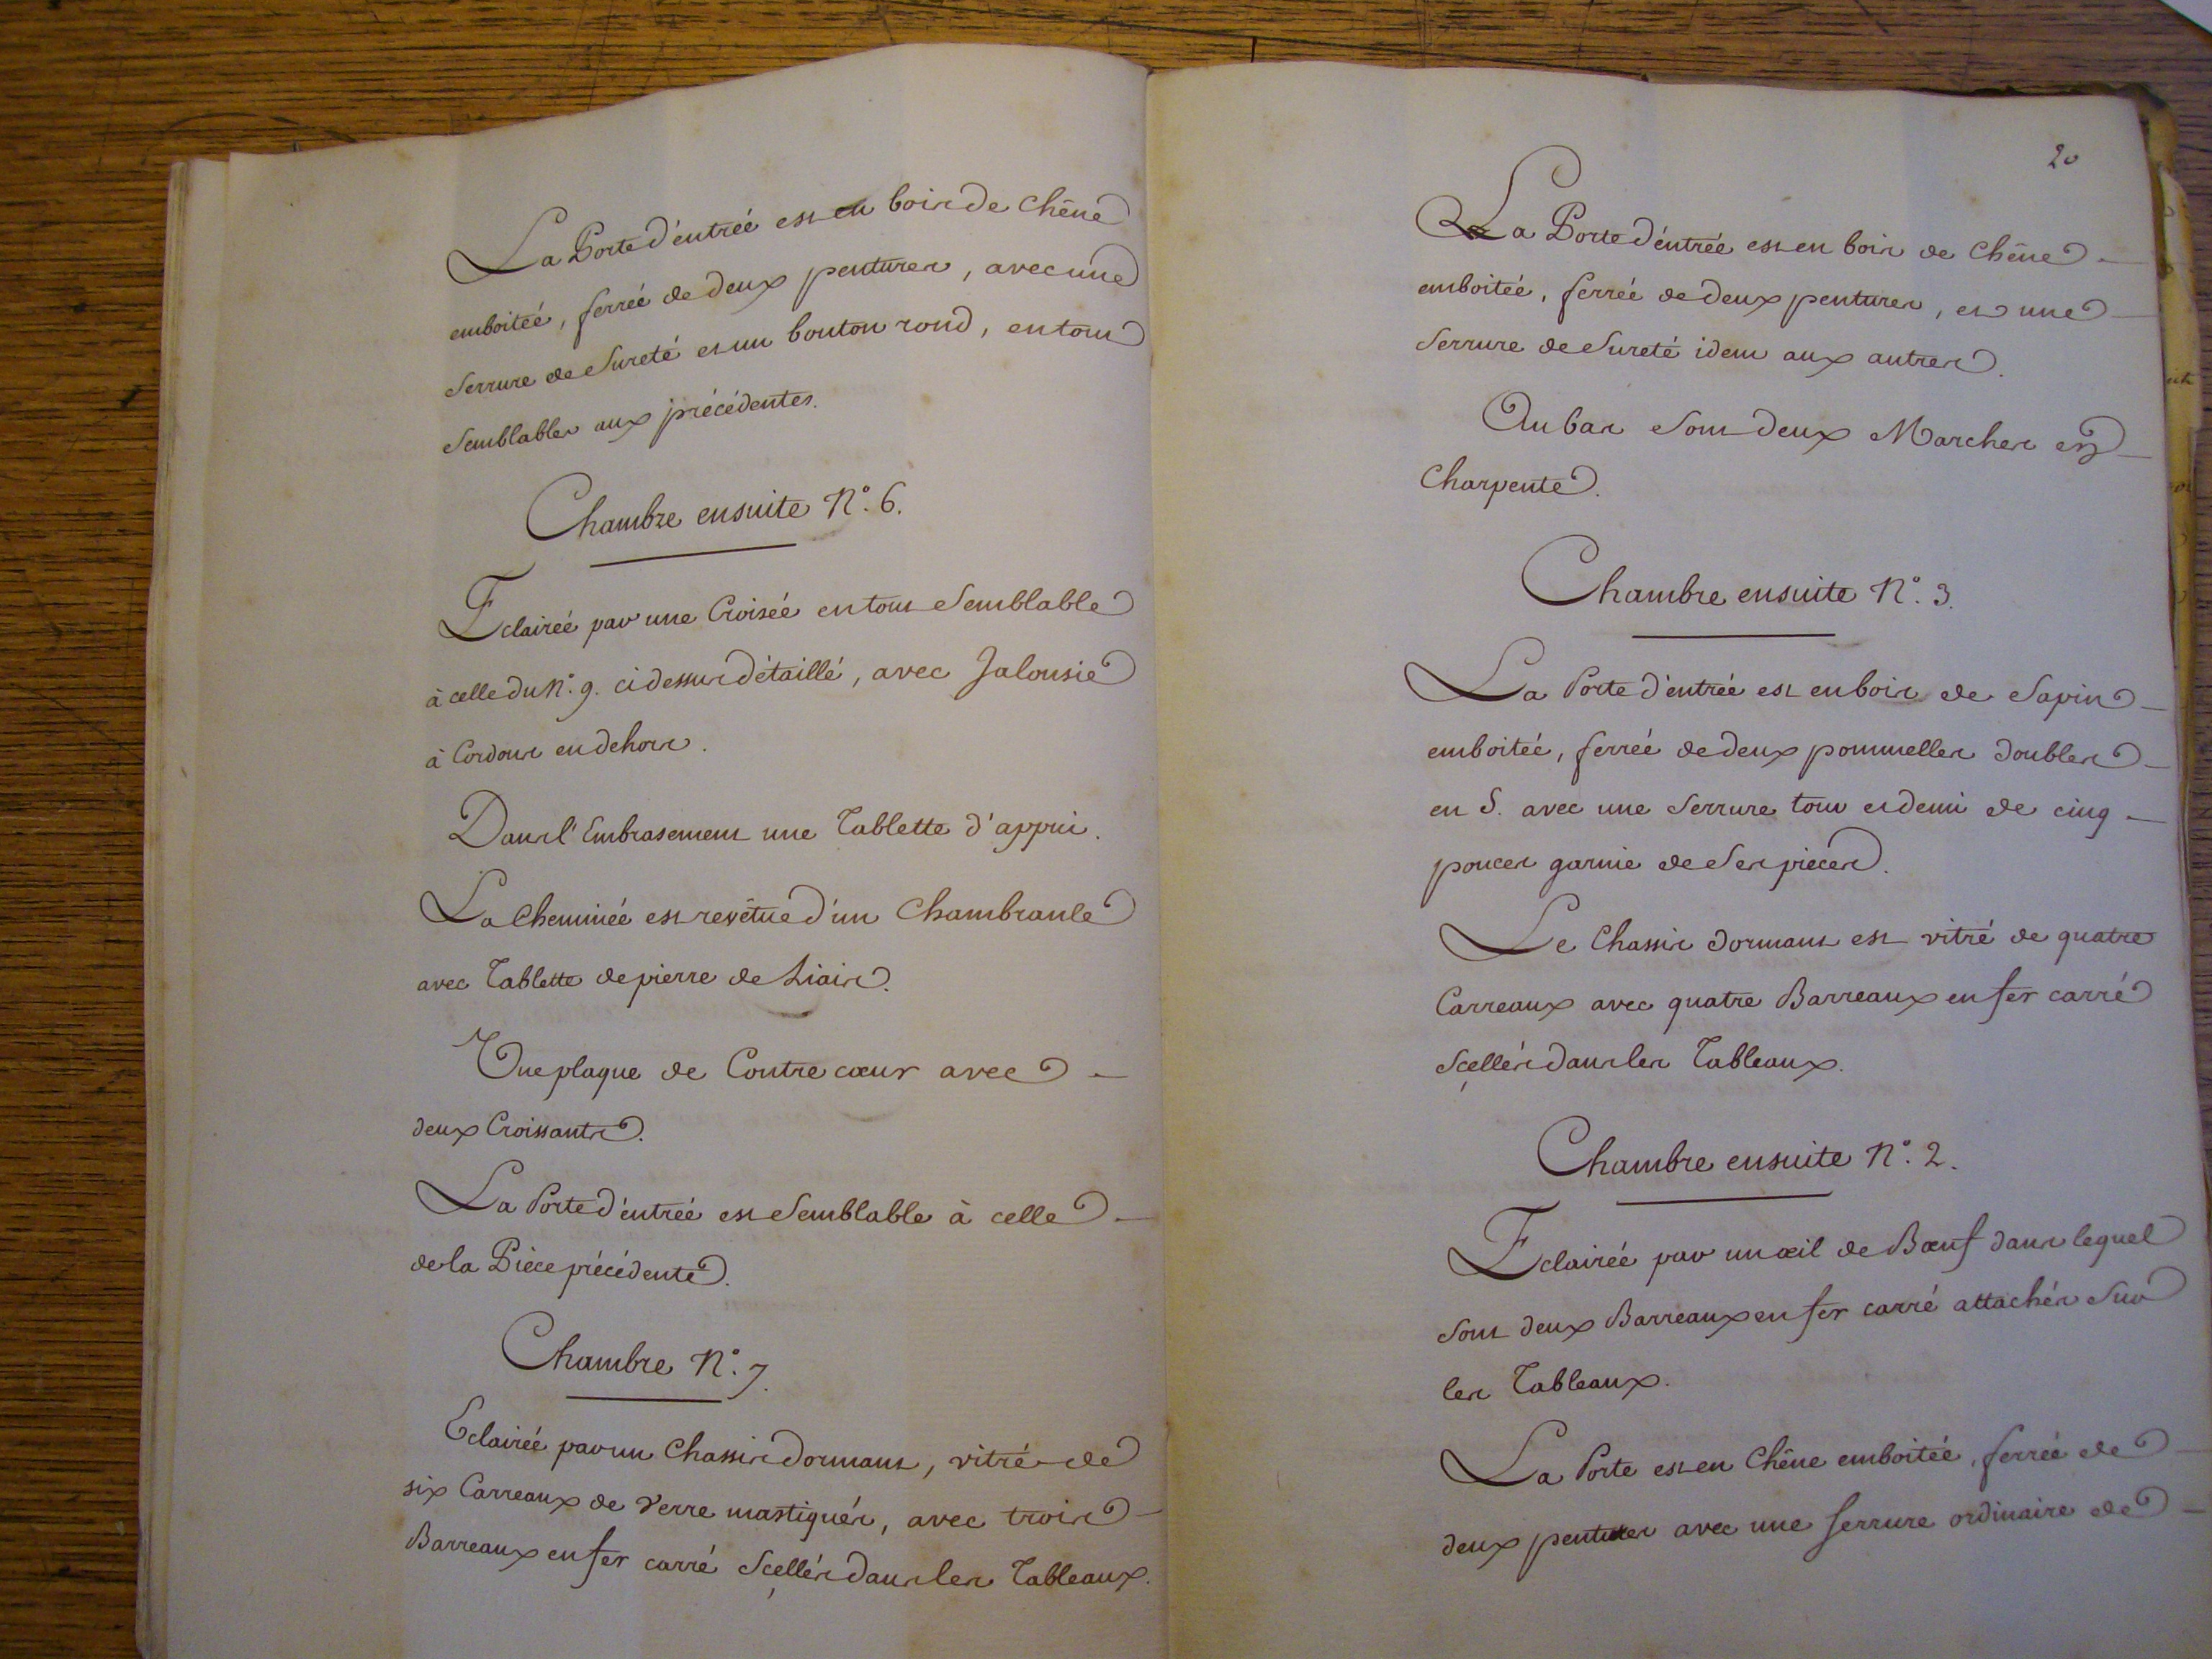 La Porte d'entrée est en bois de Chêne
emboitée, ferrée de deux pentures, avec une
Serrure de Sureté et un bouton rond, en tout
Semblables aux précédentes.
Chambre ensuite N.° 6.
Eclairée par une Croisée en tout Semblable
à celle du N.° 9. ci dessus détaillé, avec Jalousie
à Cordons en dehors.
Dans l'Embrasement une Tablette d'appui.
La Cheminée est revêtue d'un Chambranle
avec Tablette de pierre de Liais.
Une plaque de Contre cœur avec
deux Croissants.
La Porte d'entrée est Semblable à celle
de la Pièce précédente.
Chambre N.° 7.
Eclairée par un Chassis dormant, vitré de
six Carreaux de Verre mastiqués, avec trois
Barreaux en fer carré Scellés dans les Tableaux.
20
La Porte d'entrée est en bois de Chêne
emboitée, ferrée de deux pentures, et une
Serrure de Sureté idem aux autres.
Au bas Sont deux Marches en
Charpente.
Chambre ensuite N.° 3.
La Porte d'entrée est en bois de Sapin
emboitée, ferrée de deux pommelles doubles
en S. avec une Serrure tour et demi de cinq
pouces garnie de Ses pieces.
Le Chassis dormant est vitré de quatre
Carreaux avec quatre Barreaux en fer carré
Scellés dans les Tableaux.
Chambre ensuite N.° 2.
Eclairée par un œil de Bœuf dans lequel
Sont deux Barreaux en fer carré attachés Sur
les Tableaux.
La Porte est en Chêne emboitée, ferrée de
deux pentures avec une Serrure ordinaire de